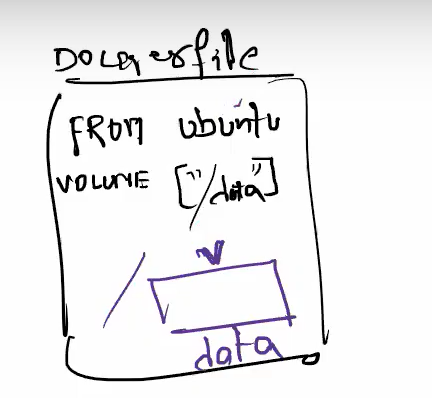 Dockerfile
FROM ubuntu
VOLUME ["/data"]
/
data